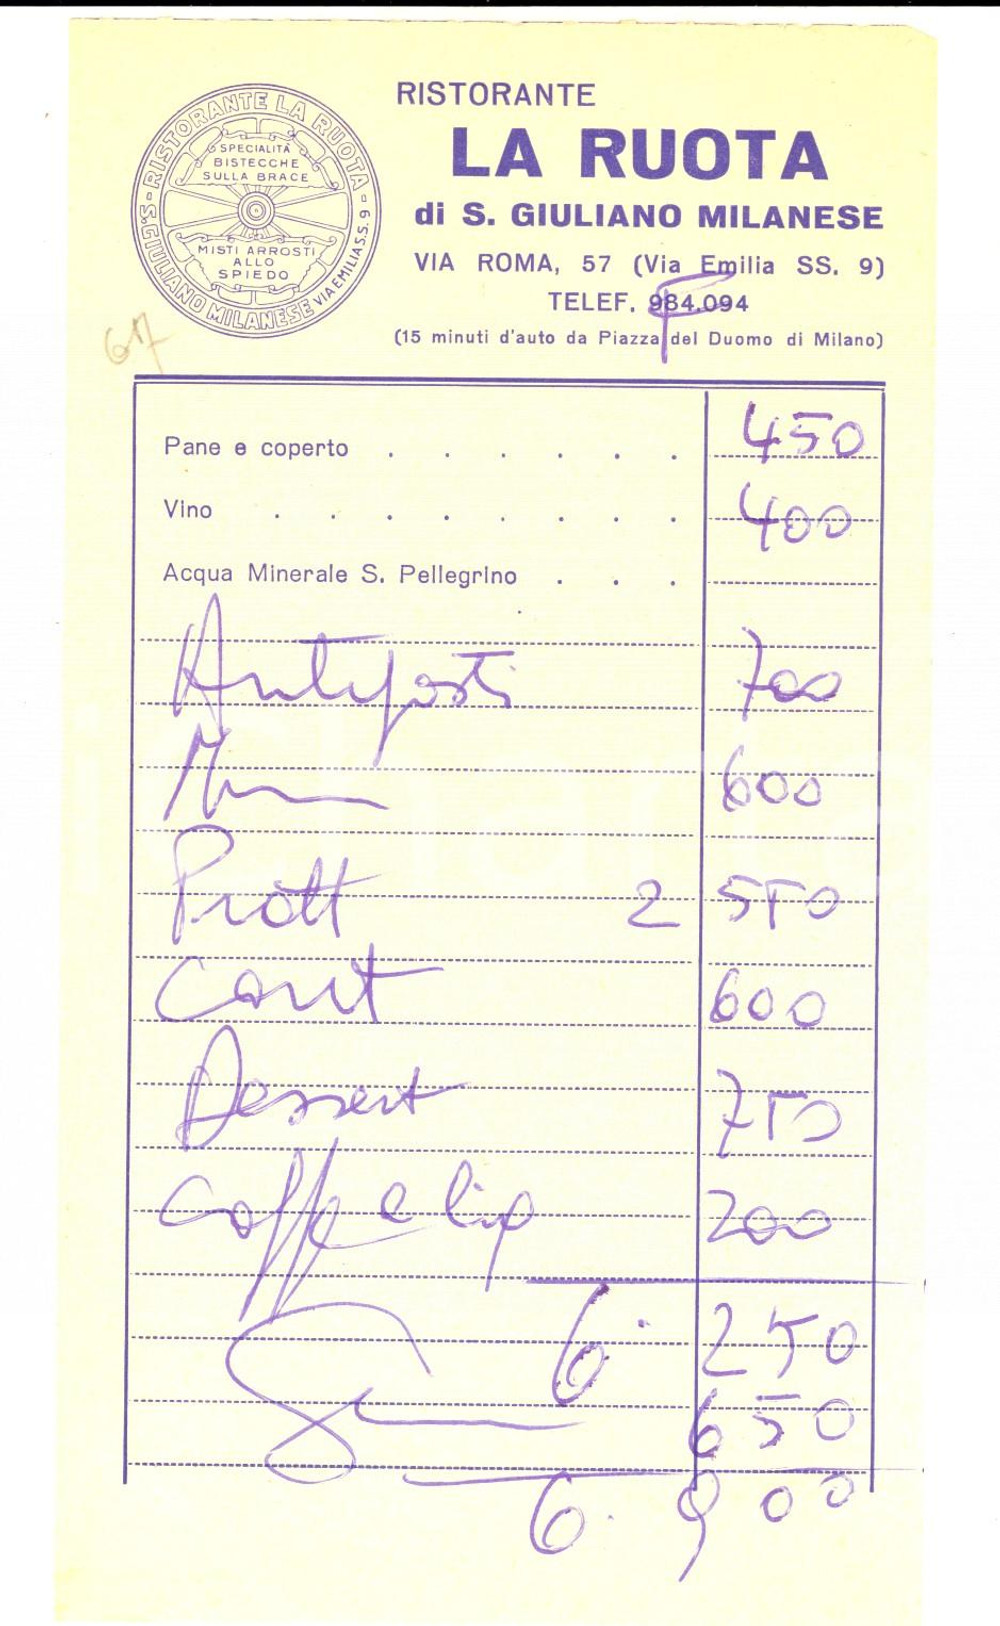 RISTORANTE LA RUOTA
S. GIULIANO MILANESE VIA EMILIA S.S. 9
SPECIALITÀ
BISTECCHE
SULLA BRACE
MISTI ARROSTI
ALLO
SPIEDO
RISTORANTE
LA RUOTA
di S. GIULIANO MILANESE
VIA ROMA, 57 (Via Emilia SS. 9)
TELEF. 984.094
(15 minuti d'auto da Piazza del Duomo di Milano)
67
Pane e coperto . . . . . . 450
Vino . . . . . . . . 400
Acqua Minerale S. Pellegrino . . .
Antipasti 700
600
Piatti 2 550
Cont 600
Dessert 750
Caffe e liq 200
6. 250
650
6. 900